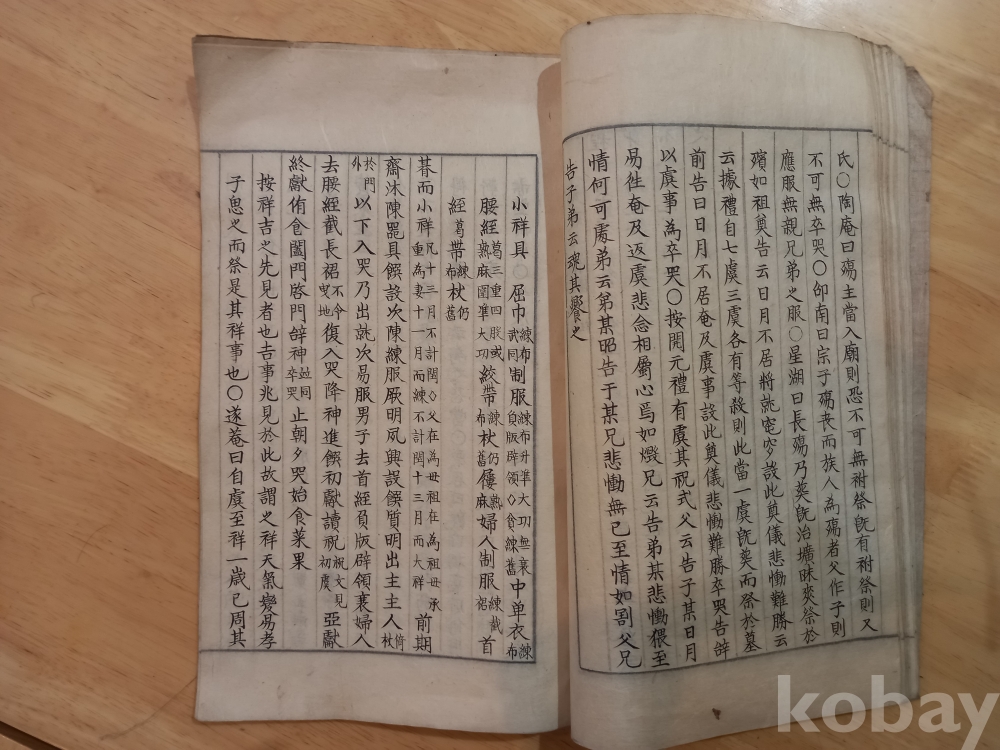 氏○陶庵曰殤主當入廟則恐不可無祔祭旣有祔祭則又
不可無卒哭○卲南曰宗子殤丧而族人為殤者父作子則
應服無親兄弟之服○星湖曰長殤乃葬旣治壙昧爽祭於
殯如祖奠告云日月不居將就窀穸設此奠儀悲慟難勝云
云據禮自七虞三虞各有等殺則此當一虞旣葬而祭於墓
前告曰日月不居奄及虞事設此奠儀悲慟難勝卒哭告辞
以虞事為卒哭○按開元禮有虞其祝式父云告子某日月
易徃奄及返虞悲念相屬心焉如燬兄云告弟某悲慟猥至
情何可處弟云弟某昭告于某兄悲慟無已至情如割父兄
告子弟云魂其饗之
小祥具○屈巾練布武同制服練布升準大功無衰負版辟領◇食練舊中单衣練布
腰絰葛三重四股或熟麻圍準大功絞帶練布杖仍舊屨熟麻婦人制服練截裙首
絰葛帶練布杖仍舊
朞而小祥凡十三月不計閏◇父在為母祖在為祖母承重為妻十一月而練不計閏十三月而大祥前期
齋沐陳噐具饌設次陳練服厥明夙興設饌質明出主主人倚杖
於門外以下入哭乃出就次易服男子去首絰負版辟領衰婦人
去腰絰截長裙不令曳地復入哭降神進饌初獻讀祝祝文見初虞亞獻
終獻侑食闔門啓門辞神並同卒哭止朝夕哭始食菜果
按祥吉之先見者也吉事兆見於此故謂之祥天氣變易孝
子思之而祭是其祥事也○遂菴曰自虞至祥一歲已周其
kobay